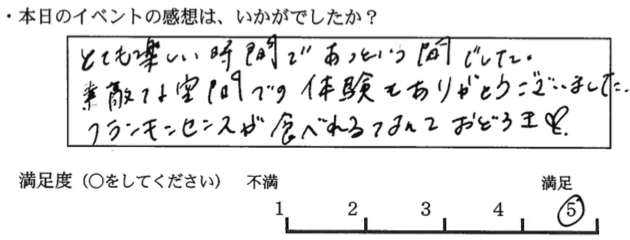 ・本日のイベントの感想は、いかがでしたか？
とても楽しい時間であっという間でした。
素敵な空間での体験もありがとうございました。
フランキンセンスが食べれるなんておどろき♡。
満足度（○をしてください） 不満 満足
1 2 3 4 5